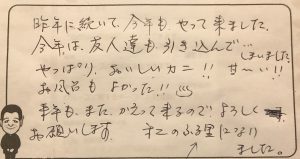 昨年に続いて、今年も、やって来ました。
今年は、友人達も引き込んで…
しまいました。
やっぱり、おいしいカニ!! 甘〜い!!
お風呂もよかった!!
来年も、また、かえって来るので、よろしく
お願いします。
オニのふる里になり
ました。